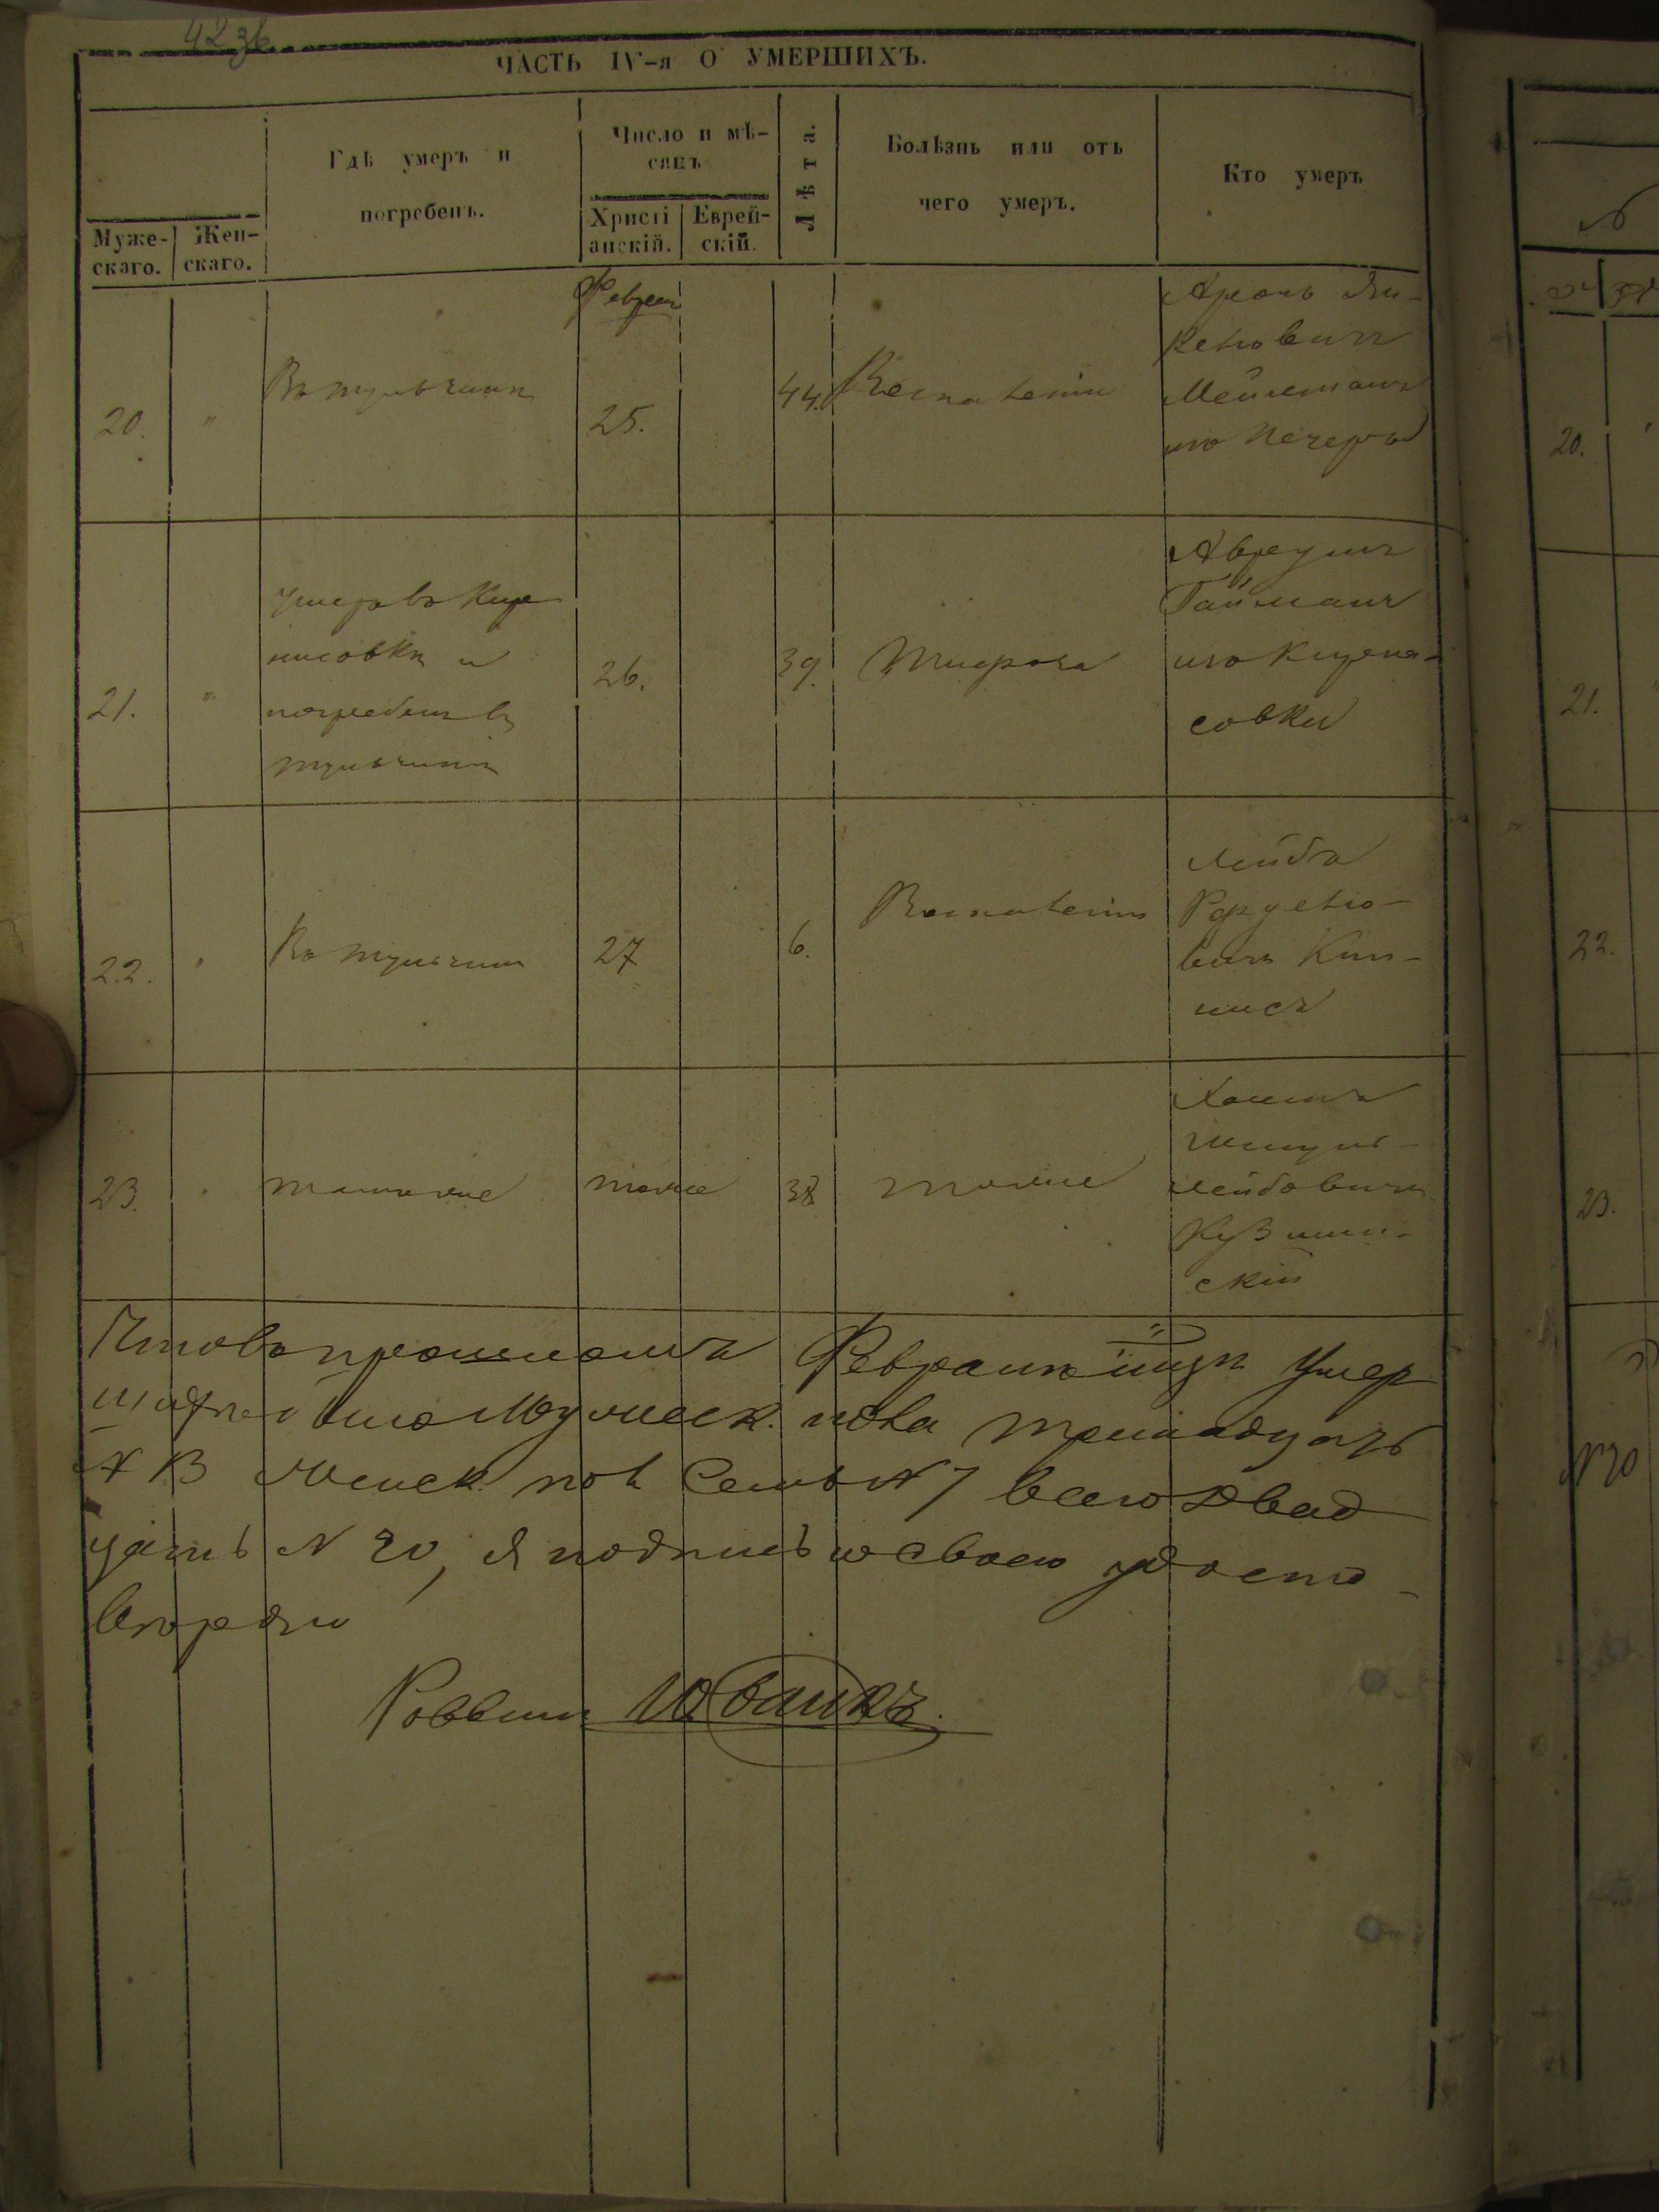 42 зв
ЧАСТЬ IV-я О УМЕРШИХЪ.
Муже-
скаго.
Жен-
скаго.
Гдѣ умеръ и
погребенъ.
Число и мѣ-
сяцъ
Христі
анскій.
Еврей-
скій.
Лѣта.
Болѣзнь или отъ
чего умеръ.
Кто умеръ
Феврал
20.
"
Въ Тульчинѣ
25.
44.
Воспаленія
Аронъ
Мейлеманъ
изъ Печеры
21.
"
умеръ въ Кир
насовкѣ и
погребенъ въ
Тульчинѣ
26.
39.
Тифоза
Авреумъ
Гайманъ
изъ Кирна-
совки
22.
"
Въ Тульчинѣ
27
6.
Воспаленія
Лейба
вичъ
23.
"
тамже
тоже
38
тоже
Хаимъ
Лейбовичъ
скій
Что въ прошломъ Февралѣ м-цѣ умер
было Мужеск. пола тринадцать
N 13 Женск. пол. Семь N 7 всего двад
цать N 20, я подписью своею удосто-
вѣряю
Раввинъ
20.
21.
22.
23.